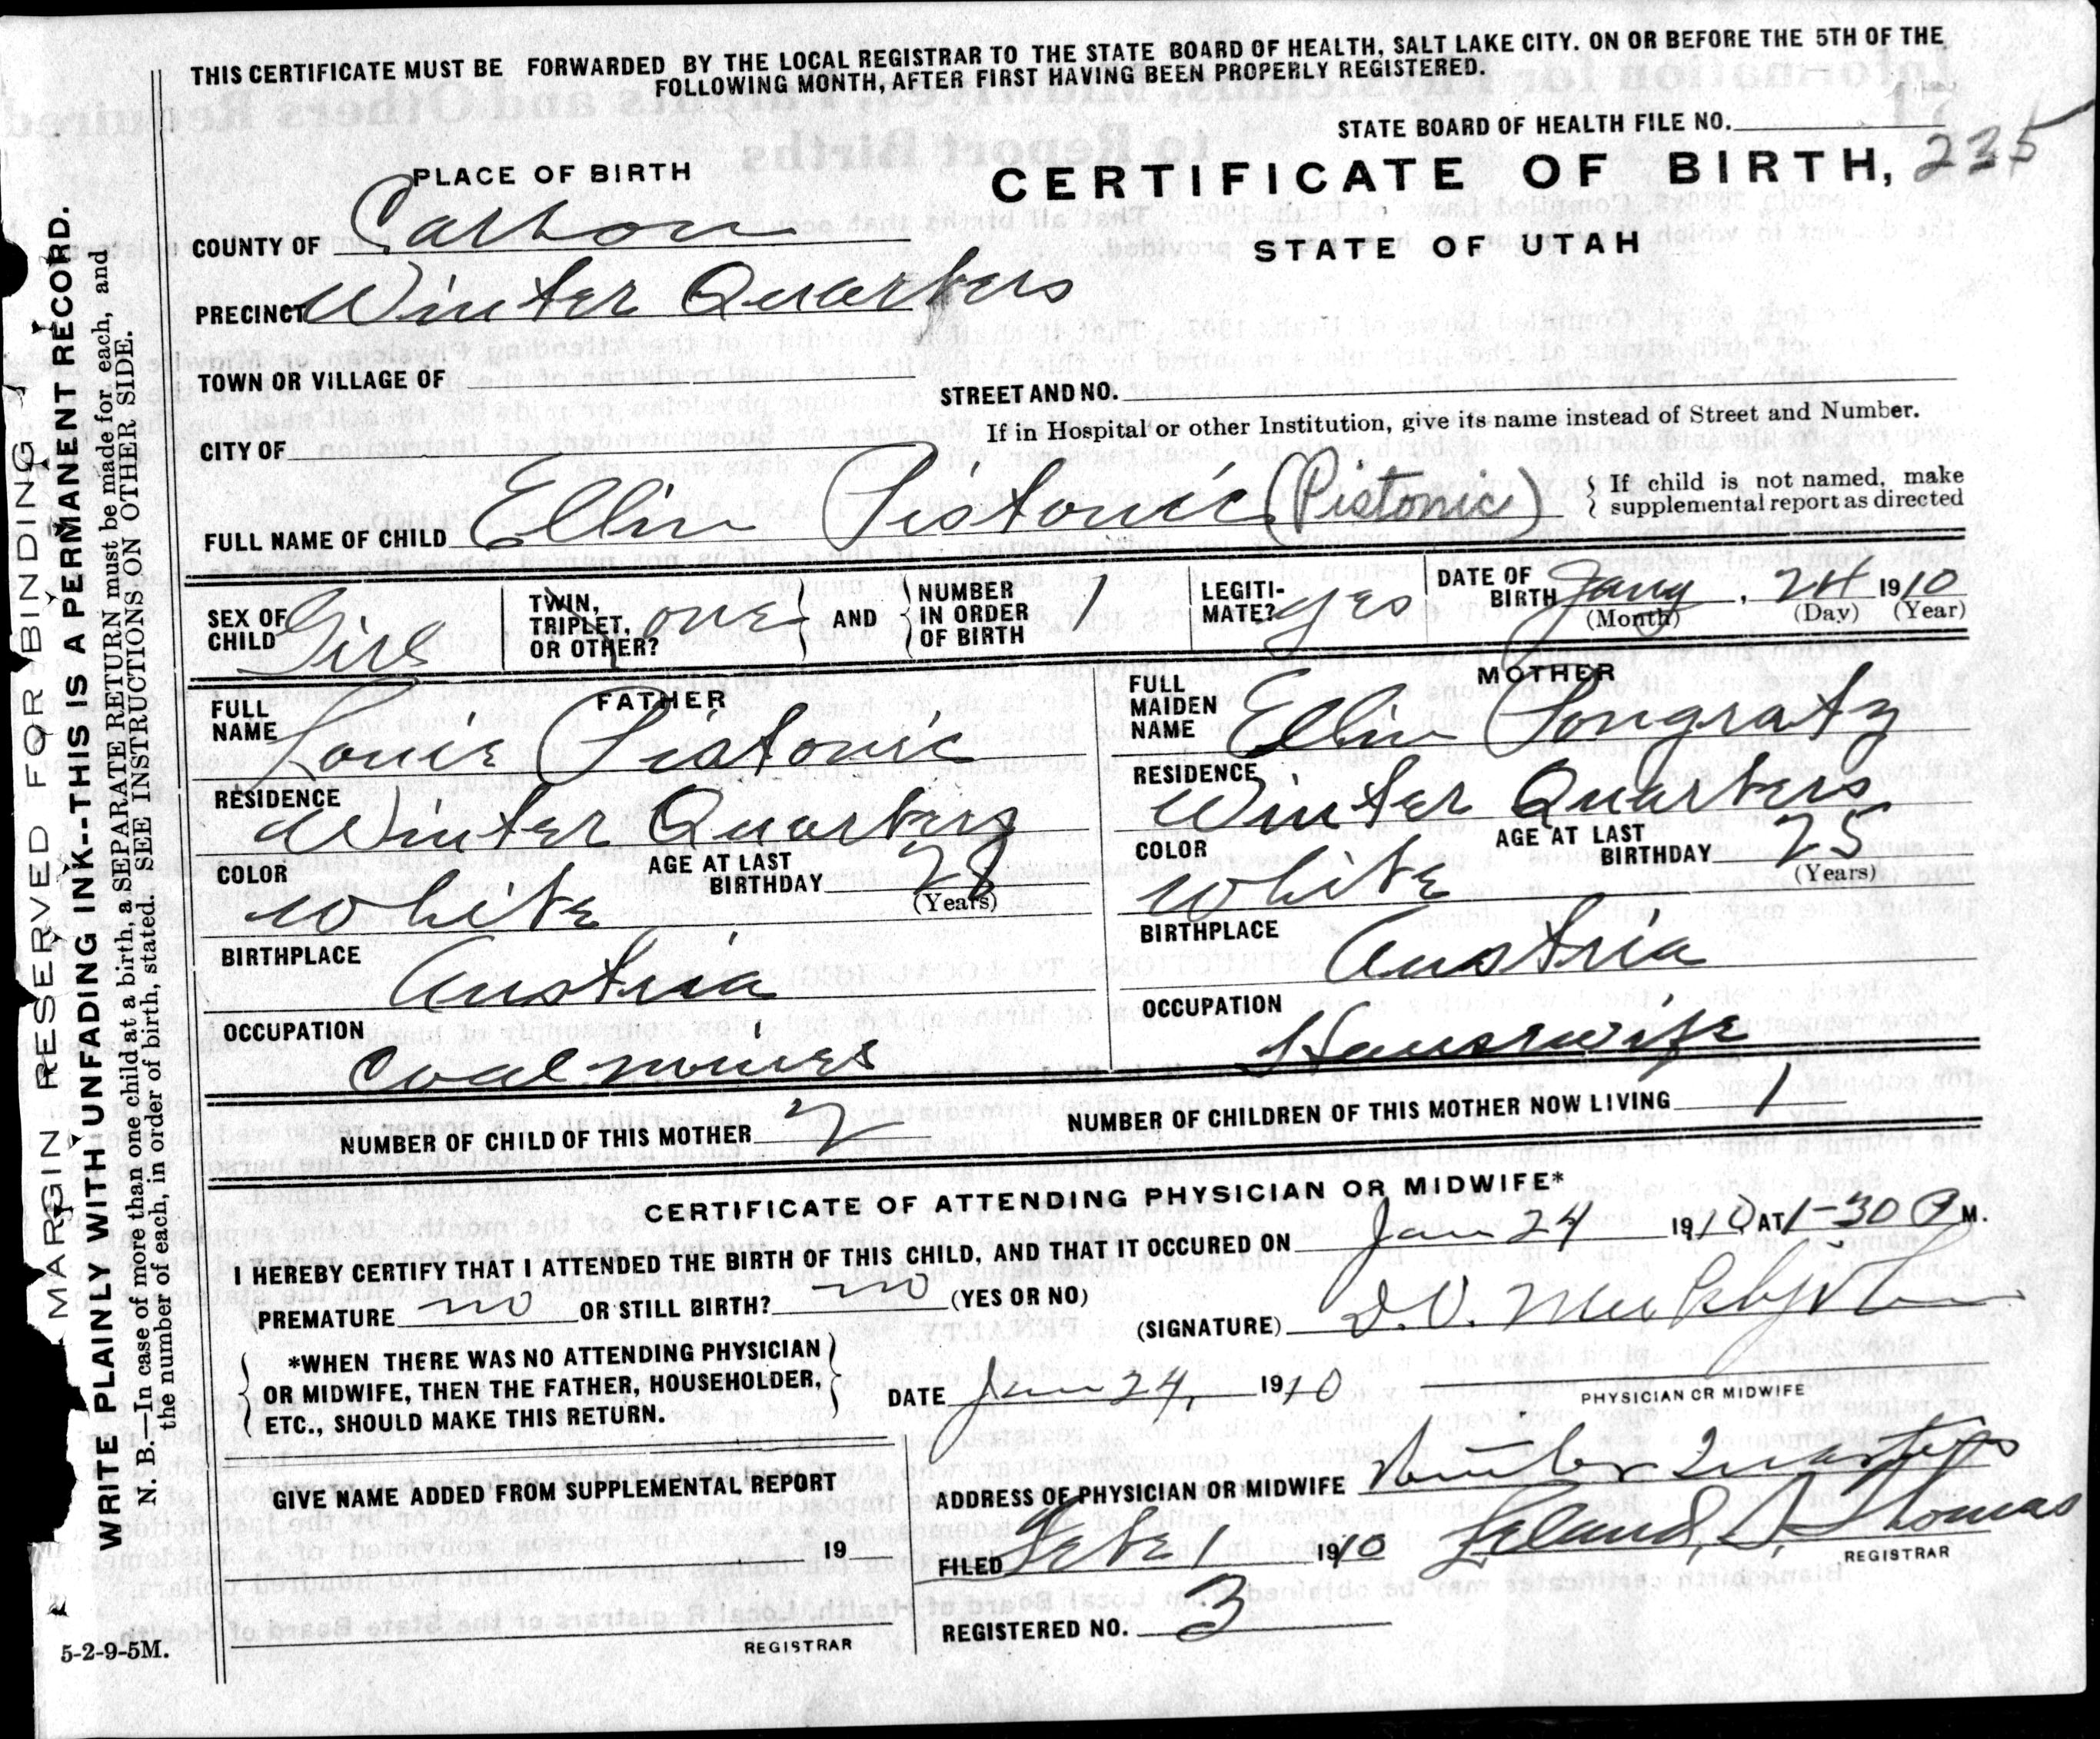 THIS CERTIFICATE MUST BE FORWARDED BY THE LOCAL REGISTRAR TO THE STATE BOARD OF HEALTH, SALT LAKE CITY. ON OR BEFORE THE 5TH OF THE
FOLLOWING MONTH, AFTER FIRST HAVING BEEN PROPERLY REGISTERED.
STATE BOARD OF HEALTH FILE NO.
PLACE OF BIRTH
CERTIFICATE OF BIRTH, 235
STATE OF UTAH
COUNTY OF Carbon
PRECINCT Winter Quarters
TOWN OR VILLAGE OF
STREET AND NO.
If in Hospital or other Institution, give its name instead of Street and Number.
CITY OF
FULL NAME OF CHILD Ellin Pistonic (Pistonic)
If child is not named, make
supplemental report as directed
SEX OF CHILD Girl
TWIN, TRIPLET, OR OTHER? one
AND NUMBER IN ORDER OF BIRTH 1
LEGITI-MATE? yes
DATE OF BIRTH Jany, 24 1910
(Month) (Day) (Year)
FATHER
FULL NAME Louie Pistonic
RESIDENCE
Winter Quarters
COLOR White
AGE AT LAST BIRTHDAY 28
(Years)
BIRTHPLACE
Austria
OCCUPATION
Coal miner
MOTHER
FULL MAIDEN NAME Ellin Pongratz
RESIDENCE
Winter Quarters
COLOR White
AGE AT LAST BIRTHDAY 25
(Years)
BIRTHPLACE
Austria
OCCUPATION
Housewife
NUMBER OF CHILD OF THIS MOTHER 2
NUMBER OF CHILDREN OF THIS MOTHER NOW LIVING 1
CERTIFICATE OF ATTENDING PHYSICIAN OR MIDWIFE*
I HEREBY CERTIFY THAT I ATTENDED THE BIRTH OF THIS CHILD, AND THAT IT OCCURED ON Jan 24 1910 AT 1-30 P M.
PREMATURE no OR STILL BIRTH? no (YES OR NO)
(SIGNATURE) D.O.
*WHEN THERE WAS NO ATTENDING PHYSICIAN
OR MIDWIFE, THEN THE FATHER, HOUSEHOLDER,
ETC., SHOULD MAKE THIS RETURN.
DATE Jan 24, 1910
PHYSICIAN OR MIDWIFE
GIVE NAME ADDED FROM SUPPLEMENTAL REPORT
19
REGISTRAR
ADDRESS OF PHYSICIAN OR MIDWIFE Winter Quarters
FILED Feb 1 1910 Leland, S, Thomas
REGISTRAR
REGISTERED NO. 3
MARGIN RESERVED FOR BINDING
WRITE PLAINLY WITH UNFADING INK--THIS IS A PERMANENT RECORD.
N. B.—In case of more than one child at a birth, a SEPARATE RETURN must be made for each, and
the number of each, in order of birth, stated. SEE INSTRUCTIONS ON OTHER SIDE.
5-2-9-5M.